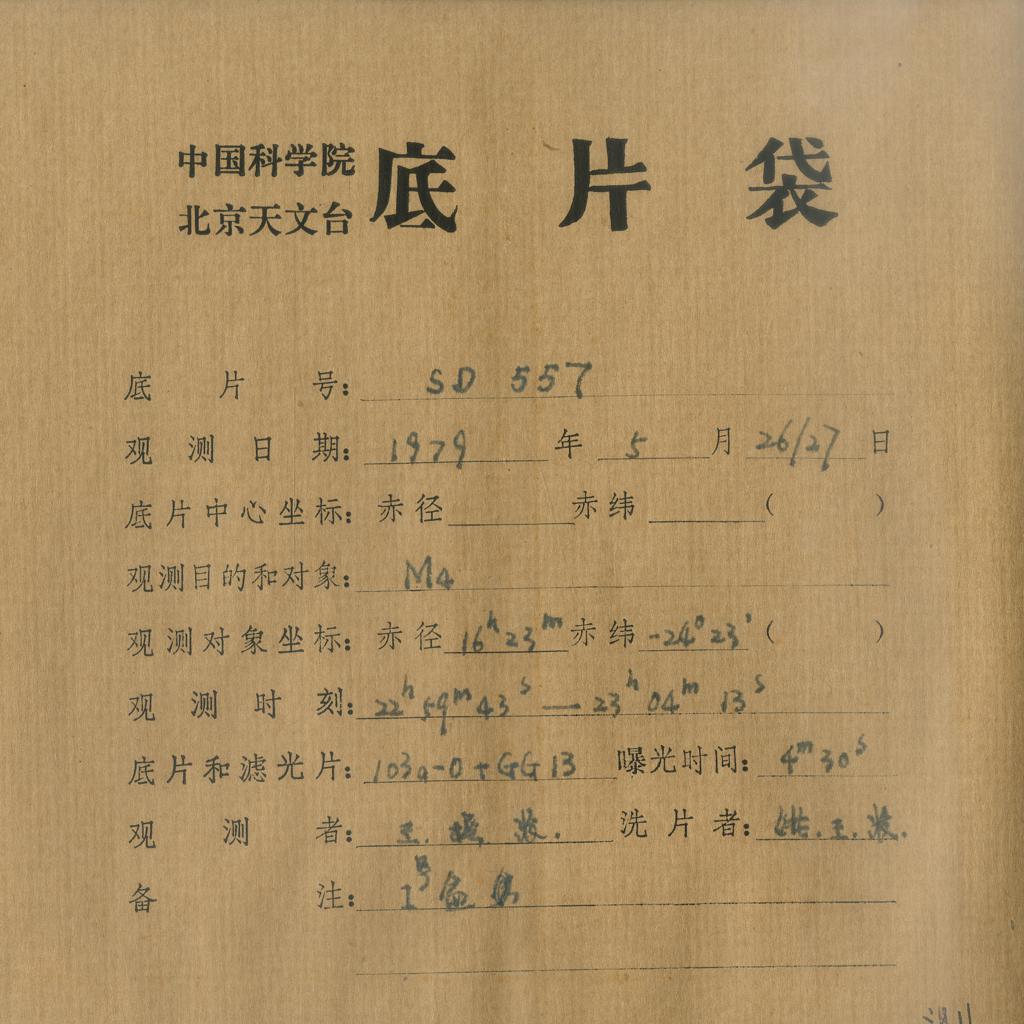 中国科学院
北京天文台
底片袋
底片号： SD 557
观测日期： 1979 年 5 月 26/27 日
底片中心坐标： 赤径 赤纬 ( )
观测目的和对象： M4
观测对象坐标： 赤径 16h23m 赤纬 -24°23' ( )
观测时刻： 22h59m43s — 23h04m13s
底片和滤光片： 103a-O+GG13 曝光时间： 4m30s
观测者： 王.
洗片者： 王.
备注： 1号